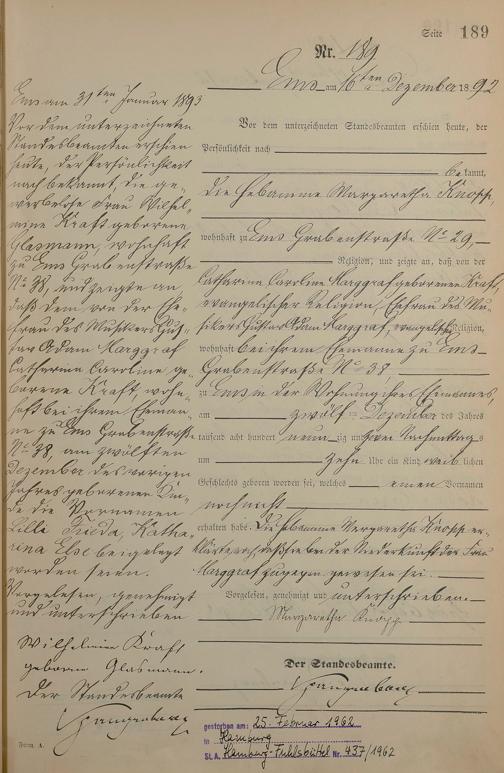 Seite 189
Nr. 189
Ems am 16ten Dezember 1892
Vor dem unterzeichneten Standesbeamten erschien heute, der
Persönlichkeit nach
bekannt,
die Hebamme Margaretha Knopp,
wohnhaft zu Ems Grabenstraße No 29,
Religion, und zeigte an, daß von der
Catharina Caroline Marggraf geborenen Kraft,
evangelischer Religion, Ehefrau des Mu-
sikers Gustav Adam Marggraf, evangelischer Religion,
wohnhaft bei ihrem Ehemanne zu Ems
Grabenstraße No 38,
zu Ems in der Wohnung ihres Ehemannes,
am zwölften Dezember des Jahres
tausend acht hundert neunzig und zwei Nachmittags
um zehn Uhr ein Kind weiblichen
Geschlechts geboren worden sei, welches einen Vornamen
noch nicht
erhalten habe. Die Hebamme Margaretha Knopp er-
klärte, daß sie bei der Niederkunft der Frau
Marggraf zugegen gewesen sei.
Vorgelesen, genehmigt und unterschrieben.
Margaretha Knopp
Der Standesbeamte.
Ems am 31ten Januar 1893
Vor dem unterzeichneten
Standesbeamten erschien
heute, der Persönlichkeit
nach bekannt, die ge-
werbelose Frau Wilhel-
mine Kraft geborene
Glasmann, wohnhaft
zu Ems Grabenstraße
No 38, und zeigte an
daß dem von der Ehe-
frau des Musikers Gus-
tav Adam Marggraf
Catharina Caroline ge-
borene Kraft, wohn-
haft bei ihrem Eheman-
ne zu Ems Grabenstraße
No 38, am zwölften
Dezember des vorigen
Jahres geborenen Kin-
de die Vornamen
Lilli Frieda, Katha-
rina Else beigelegt
worden seien.
Vorgelesen, genehmigt
und unterschrieben
Wilhelmine Kraft
geborene Glasmann.
Der Standesbeamte
Form. A.
gestorben am: 25. Februar 1962
in Hamburg
St. A. Hamburg-Fuhlsbüttel Nr. 437/1962